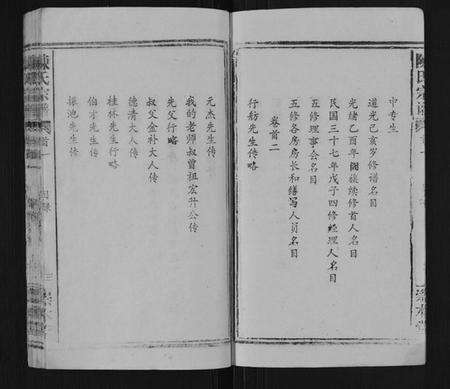 中专生
道光己亥岁修谱名目
光绪乙酉年阖族续修首人名目
民国三十七年戊子四修经理人名目
五修理事会名目
五修各房房长和缮写人员名目
卷首二
行舫先生传略
元杰先生传
我的老师叔曾祖宏升公传
先父行略
叔父金补大人传
德清大人传
桂林先生行略
伯才先生传
振池先生传
陳氏宗譜
卷首一
目錄
三